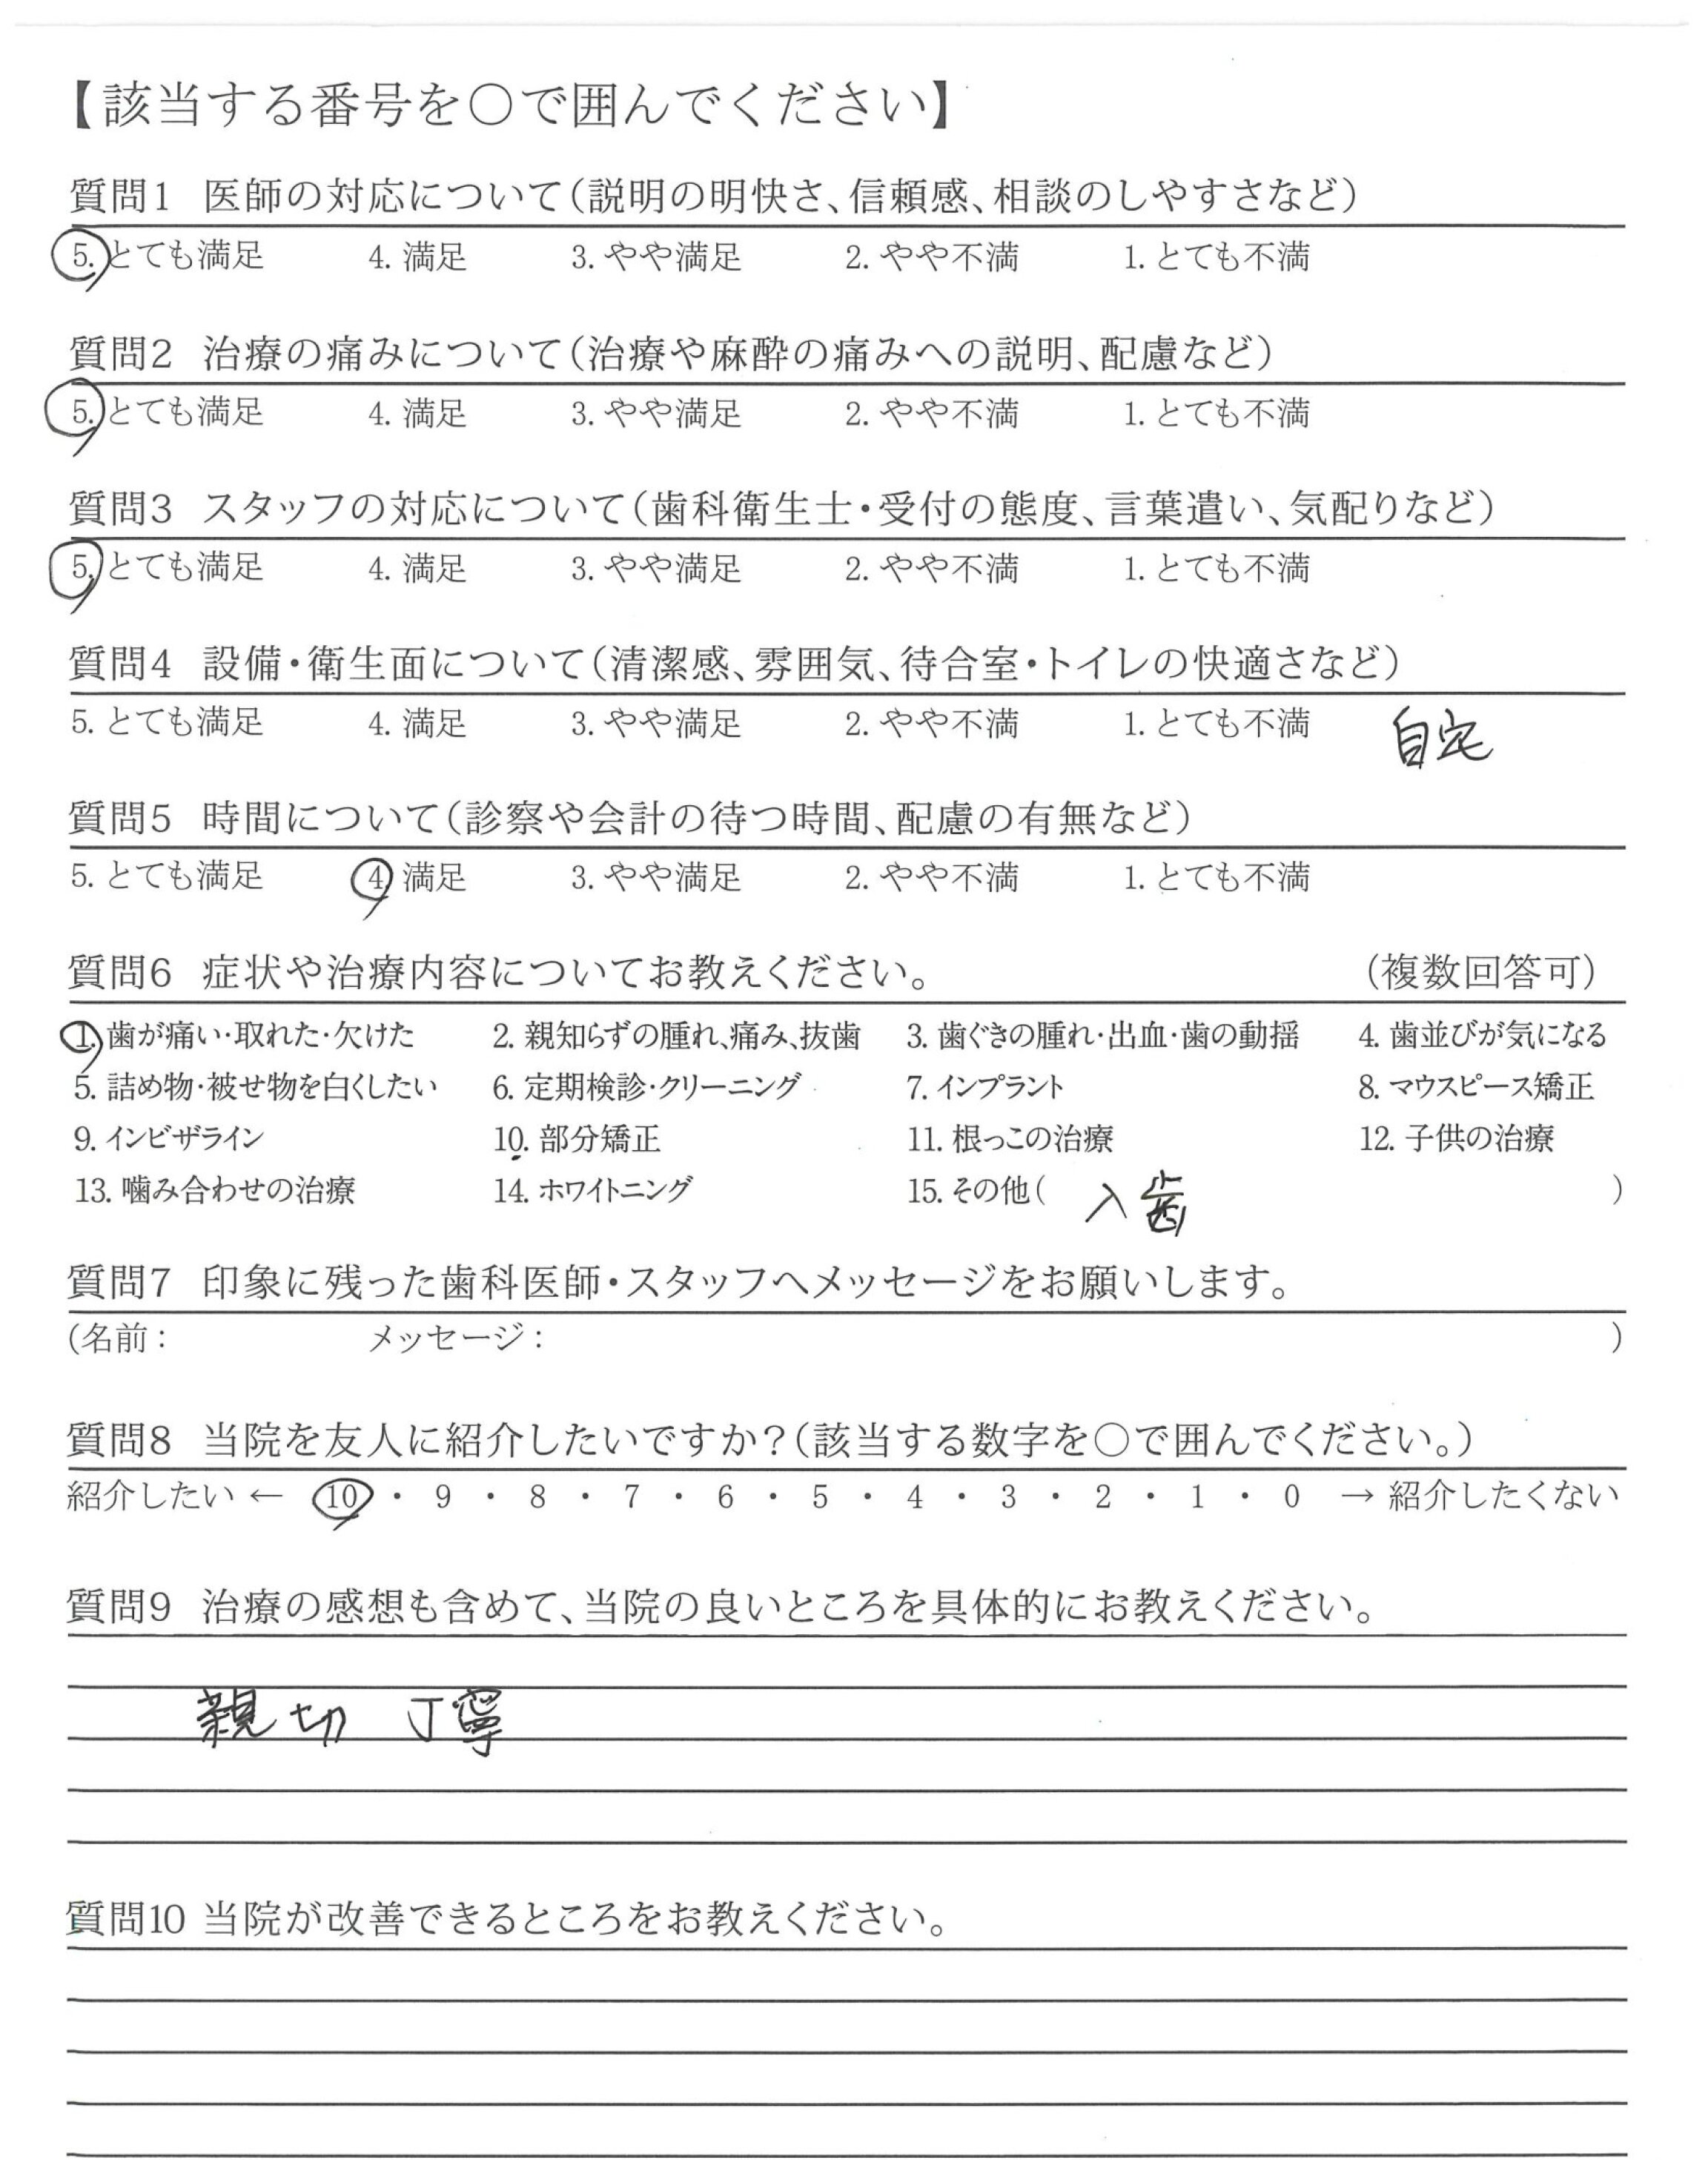 【該当する番号を○で囲んでください】
質問1 医師の対応について(説明の明快さ、信頼感、相談のしやすさなど)
5. とても満足 4. 満足 3. やや満足 2. やや不満 1. とても不満
質問2 治療の痛みについて(治療や麻酔の痛みへの説明、配慮など)
5. とても満足 4. 満足 3. やや満足 2. やや不満 1. とても不満
質問3 スタッフの対応について(歯科衛生士・受付の態度、言葉遣い、気配りなど)
5. とても満足 4. 満足 3. やや満足 2. やや不満 1. とても不満
質問4 設備・衛生面について(清潔感、雰囲気、待合室・トイレの快適さなど)
5. とても満足 4. 満足 3. やや満足 2. やや不満 1. とても不満 自宅
質問5 時間について(診察や会計の待つ時間、配慮の有無など)
5. とても満足 4. 満足 3. やや満足 2. やや不満 1. とても不満
質問6 症状や治療内容についてお教えください。 (複数回答可)
1. 歯が痛い・取れた・欠けた 2. 親知らずの腫れ、痛み、抜歯 3. 歯ぐきの腫れ・出血・歯の動揺 4. 歯並びが気になる
5. 詰め物・被せ物を白くしたい 6. 定期検診・クリーニング 7. インプラント 8. マウスピース矯正
9. インビザライン 10. 部分矯正 11. 根っこの治療 12. 子供の治療
13. 噛み合わせの治療 14. ホワイトニング 15. その他( 入歯 )
質問7 印象に残った歯科医師・スタッフへメッセージをお願いします。
(名前: メッセージ: )
質問8 当院を友人に紹介したいですか?(該当する数字を○で囲んでください。)
紹介したい ← 10 ・ 9 ・ 8 ・ 7 ・ 6 ・ 5 ・ 4 ・ 3 ・ 2 ・ 1 ・ 0 → 紹介したくない
質問9 治療の感想も含めて、当院の良いところを具体的にお教えください。
親切 丁寧
質問10 当院が改善できるところをお教えください。